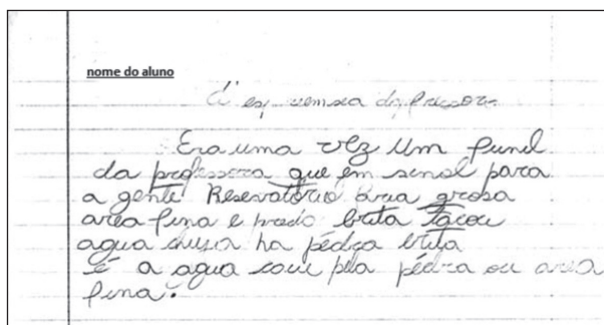 nome do aluno
Era uma vez um funil
da professora que em sinol para
a gente Reservatório aria grosa
area fina e predo brita tacou
agua chusa na pédra brita
é a agua saiu pela pédra ou area
fina.